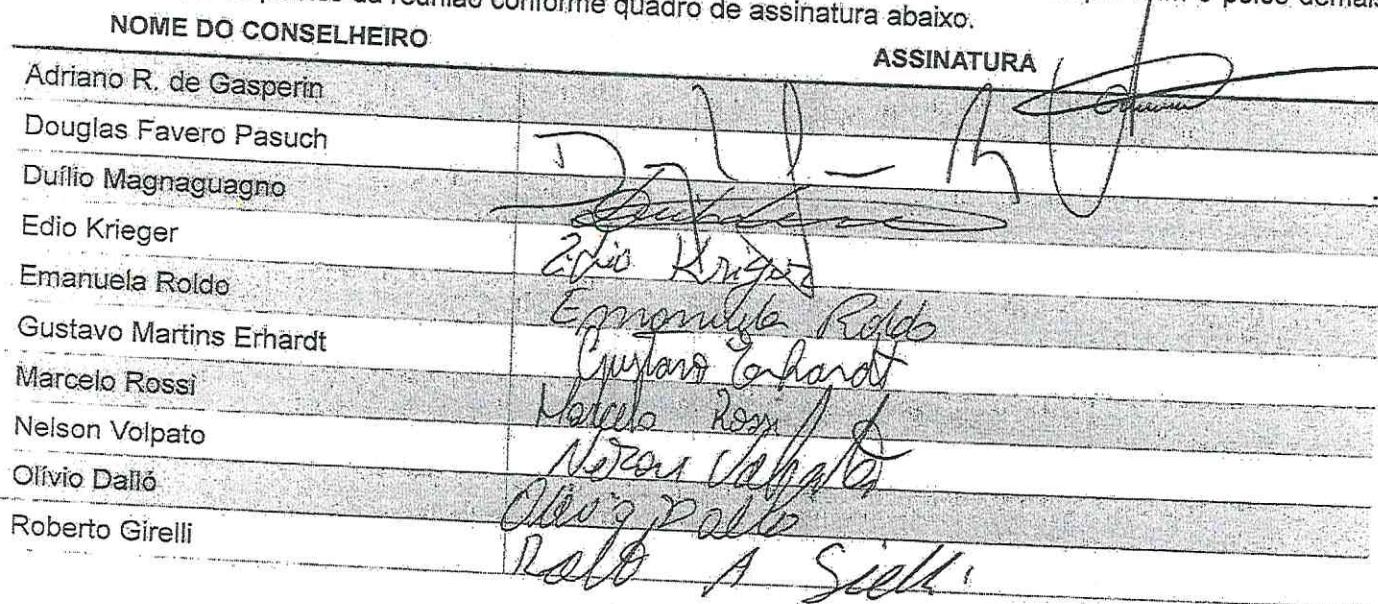 da reunião conforme quadro de assinatura abaixo.
NOME DO CONSELHEIRO ASSINATURA
Adriano R. de Gasperin
Douglas Favero Pasuch
Duílio Magnaguagno
Edio Krieger Edio Krieger
Emanuela Roldo Emanuela Roldo
Gustavo Martins Erhardt Gustavo Erhardt
Marcelo Rossi Marcelo Rossi
Nelson Volpato Nelson Volpato
Olívio Dalló Olivio Dallo
Roberto Girelli